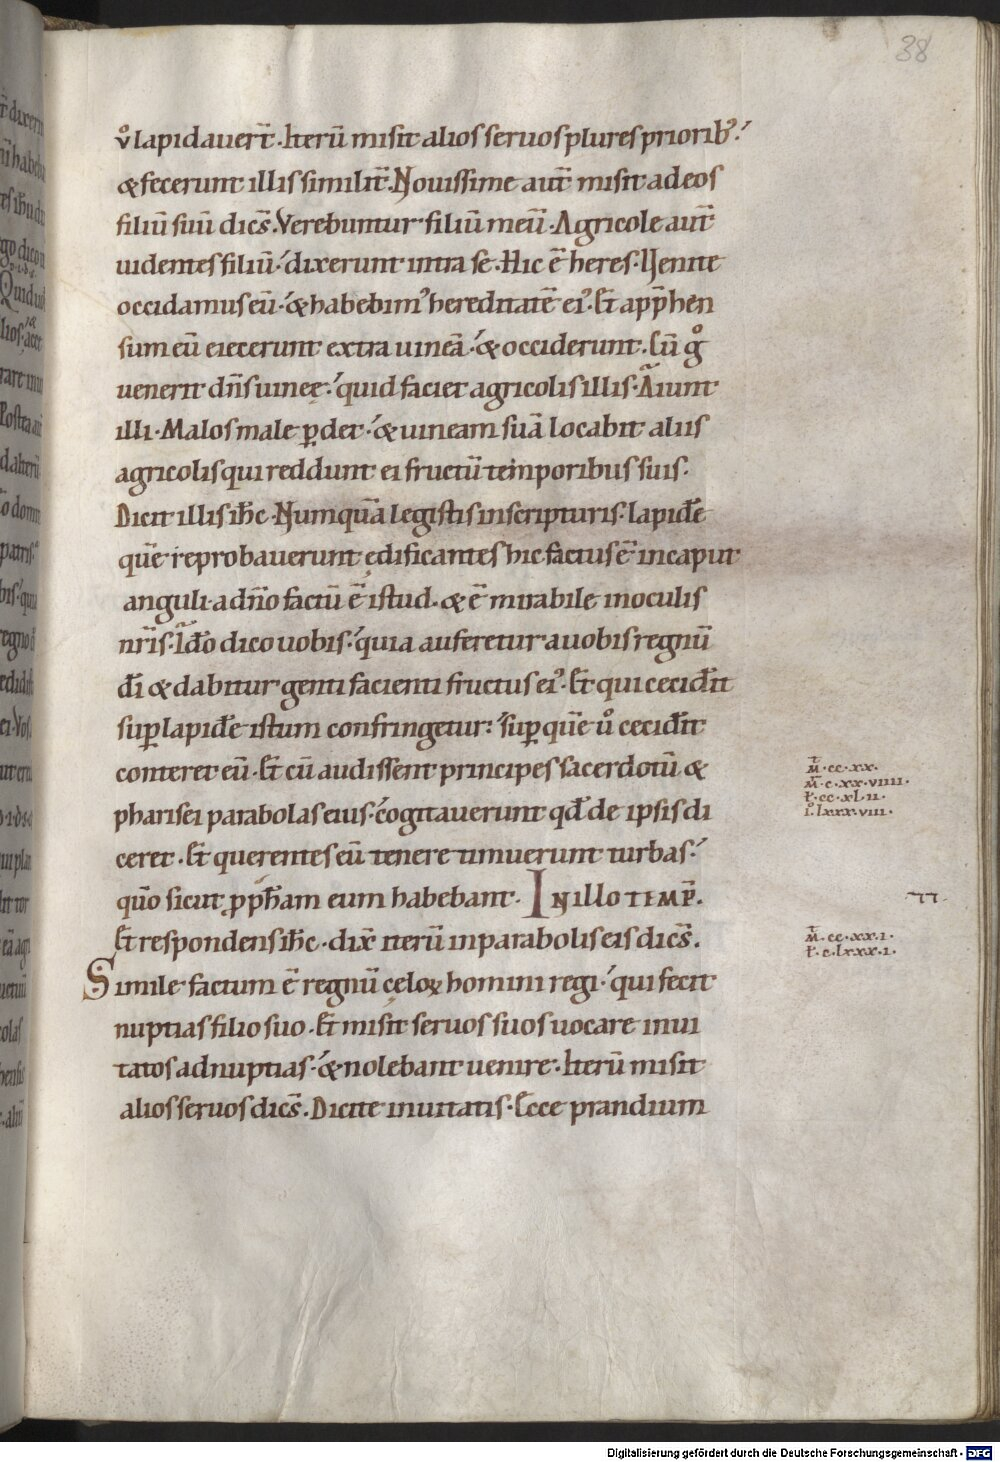 38
v̊ lapidauert̄. Iterū misit alios seruos plures priorib;
& fecerunt illis similit̄. Nouissime aut̄ misit ad eos
filiū suū dicēs. Verebuntur filiū meū. Agricole aut̄
uidentes filiū. dixerunt intra se. Hic ē heres. Uenite
occidamus eū. & habebim᾿ hereditatē ei᾿. Et app̄hen
sum eū eiecerunt extra uineā. & occiderunt. Cū g̊
uenerit dn̄s uineę. quid faciet agricolis illis. Aiunt
illi. Malos male ꝑdet. & uineam suā locabit aliis
agricolis qui reddunt ei fructū temporibus suis.
Dicit illis ih̄c. Numquā legistis in scripturis. lapidē
quē reprobauerunt ędificantes hic factus ē in caput
anguli. a dn̄o factū ē istud. & ē mirabile in oculis
nr̄is. Ido̅ dico uobis. quia auferetur a uobis regnū
dī & dabitur genti facienti fructus ei᾿. Et qui cecid̄it
suꝑ lapidē istum confringetur. suꝑ quē ů cecid̄it
conteret eū. Et cū audissent principes sacerdotū &
pharisei parabolas eius. cogitauerunt qd̄ de ipsis di
ceret. Et querentes eū tenere timuerunt turbas.
qūo sicut ꝓph̄am eum habebant. IN ILLO TEMP̄.
Et respondens ih̄c. dix̄ iterū in parabolis eis dicēs.
Simile factum ē regnū cęloꝝ homini regi. qui fecit
nuptias filio suo. Et misit seruos suos uocare inui
tatos ad nuptias. & nolebant uenire. Iterū misit
alios seruos dicēs. Dicite inuitatis. Ecce prandium
M̄. cc. xx.
M̄. c. xx. viiii.
ł. cc. xl. ii.
i̊. lxxx. viii.
M̄. cc. xx. i.
ł. c. lxxx. i.
Digitalisierung gefördert durch die Deutsche Forschungsgemeinschaft - DFG